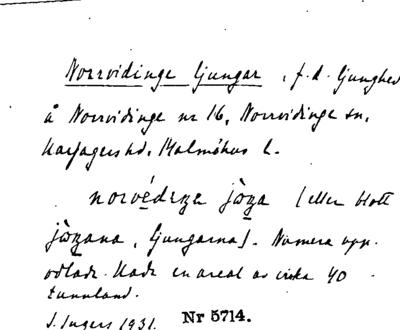 Norrvidinge ljungar, f. d. ljunghed
å Norrvidinge nr 16, Norrvidinge sn,
Harjagers hd, Malmöhus l.
norvédıŋa jòŋa (eller blott
jòŋana, ljungarna). Numera upp-
odlade. Hade en areal av cirka 40
tunnland.
J. Ingers 1931. Nr 5714.